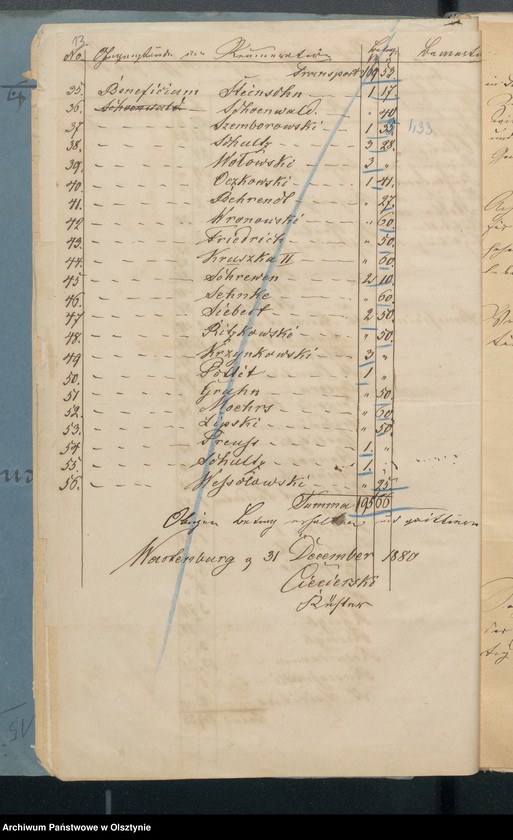 13.
No. Gegenstände der Remuneration Betrag Bemerk
Transport 169 53
35. Beneficium Heinsohn 1 17
36. " Schoenwald " 40
37 Szemborowski 1 33 1,33
38. Schultz 3 28
39. Wolowski 3 "
40. Oczkowski 1 41
41. Behrendt " 27
42 Wronowski " 60
43. Friedrich " 50
44. Kruszka II " 60
45 Söhrewen 2 10
46. Sehnke " 60
47 Siebert 2 50
48. Ritzkowski " 50
49 Krzynkowski 3 "
50. Pollet 1 "
51 Gruhn " 50
52. Moehrs " 60
53. Lipski " 50
54. Preuss 1 "
55. Schultz 1 "
56. Wessolowski " 25
Summa 195 66
Obigen Betrag erhalten und quittiren
Wartenburg d 31 December 1880
Cicierski
Küster
Archiwum Państwowe w Olsztynie